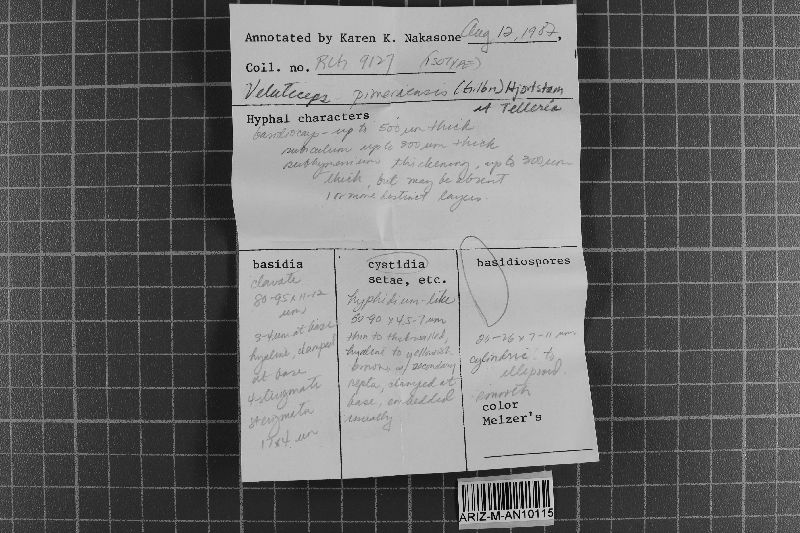 Annotated by Karen K. Nakasone Aug 12, 1987,
Coll. no. RLG 9127 (ISOTYPE)
Veluticeps pimeriensis (Gilbn) Hjortstam
& Telleria
Hyphal characters
basidiocarp - up to 500 µm thick
subiculum up to 300 µm thick
subhymenium thickening, up to 300 µm
thick, but may be absent
1 or more distinct layers.
basidia
clavate
80-95 x 11-12
µm
3-4 µm at base
hyaline, clamped
at base
4-sterigmate
sterigmata
17x4 µm
cystidia
setae, etc.
hyphidium-like
50-90 x 4.5-7 µm
thin to thickwalled,
hyaline to yellowish
brown w/ secondary
septa, clamped at
base, embedded
usually
basidiospores
20-26 x 7-11 µm
cylindric to
ellipsoid.
smooth
color
Melzer's
ARIZ-M-AN10115